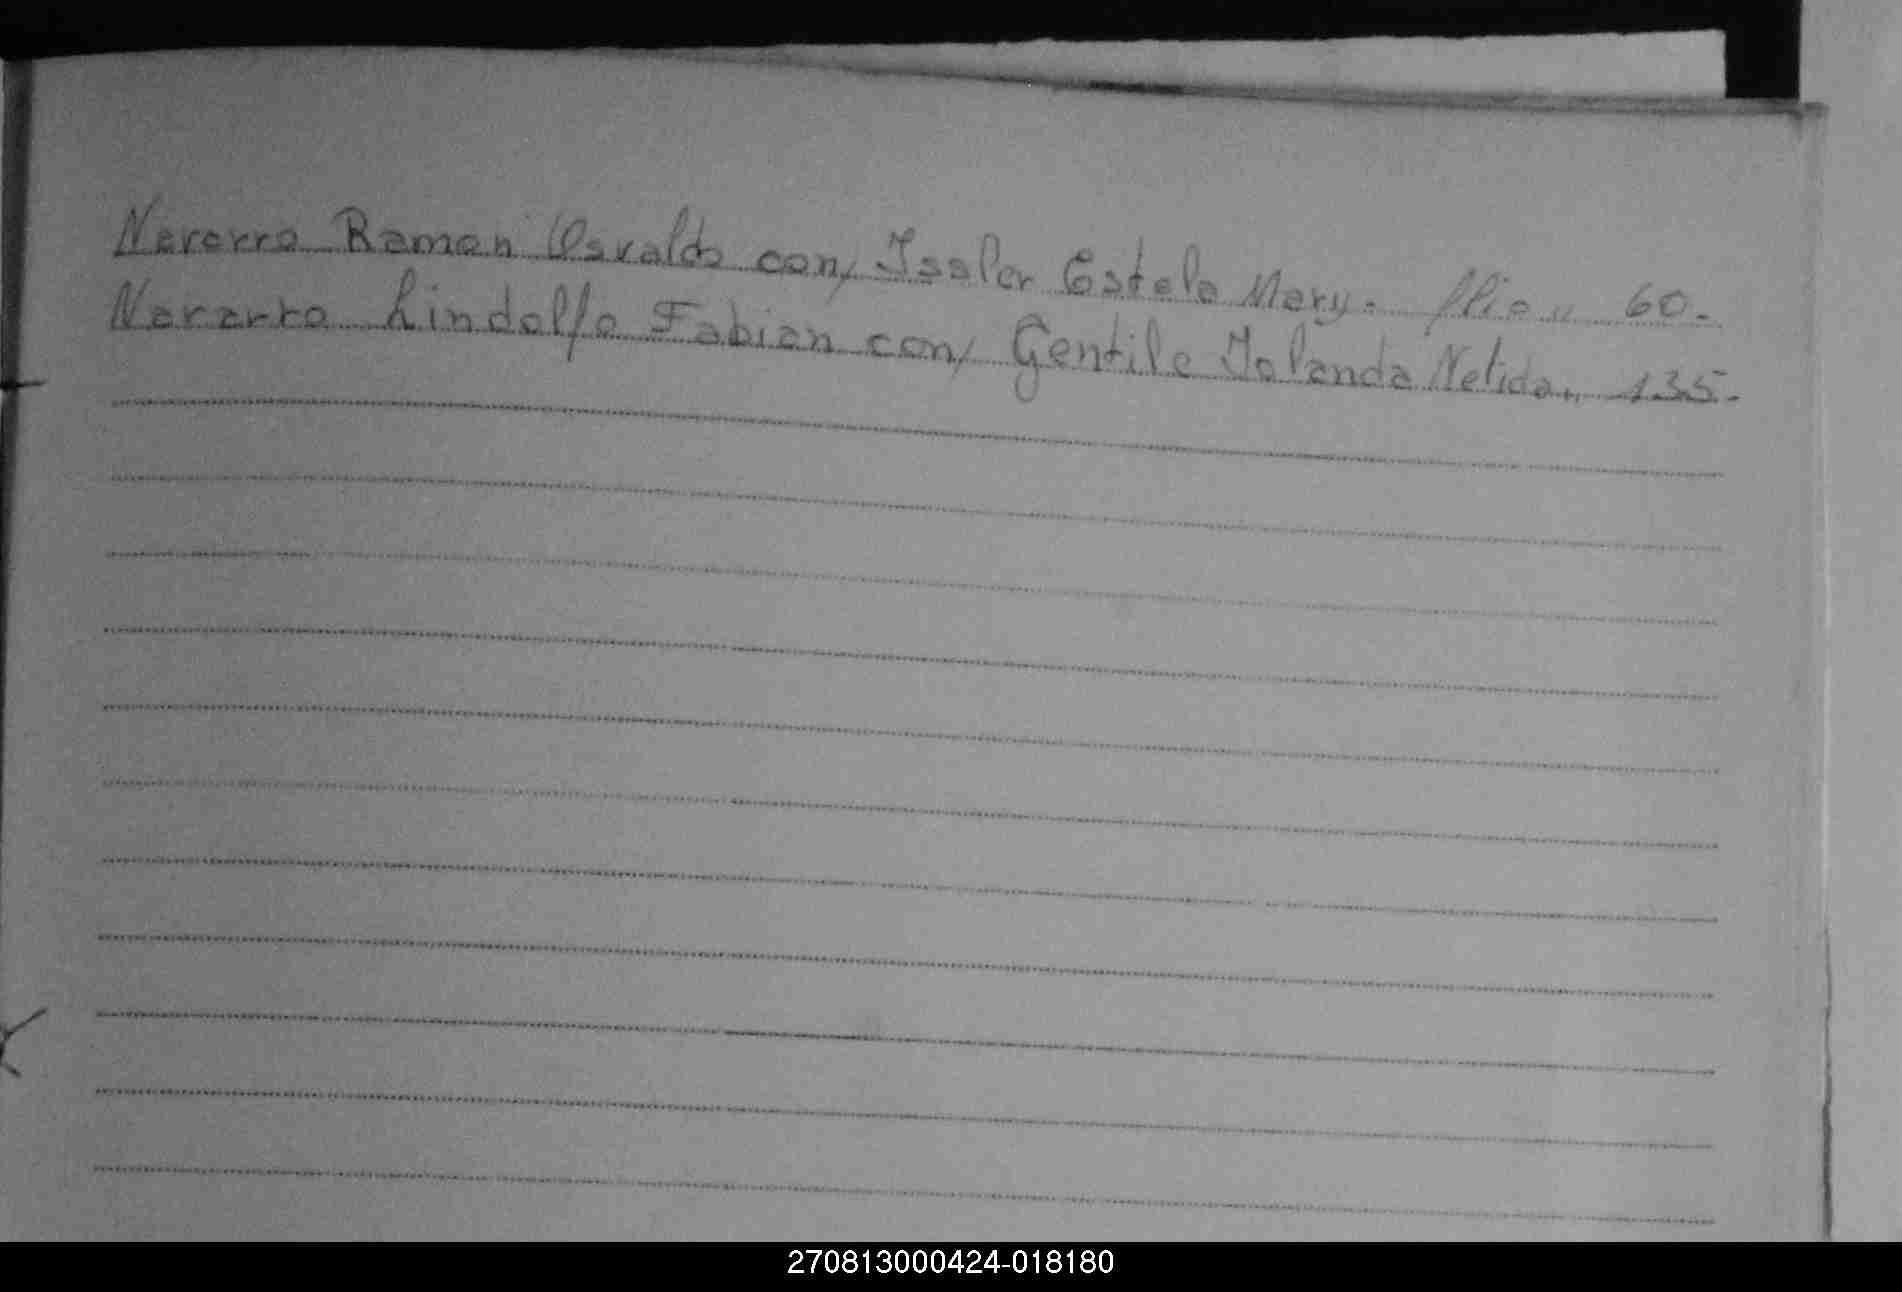 Navarro Ramon Osvaldo con, Issler Estela Mary. 60.
Navarro Lindolfo Fabian con, Gentile Iolanda Nelida. 135.
270813000424-018180